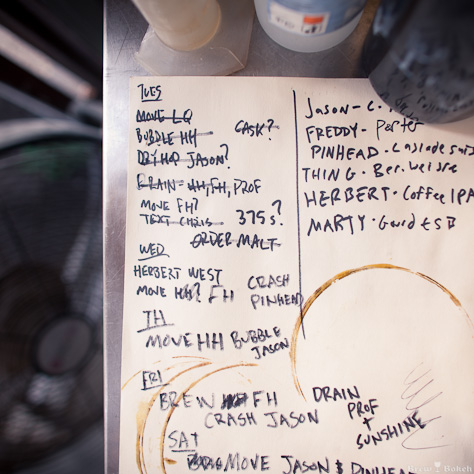 TUES
MOVE LQ
BUBBLE HH CASK?
DRY HOP JASON?
DRAIN HH, FH, PROF
MOVE FH?
TEXT CHRIS 375s?
ORDER MALT
WED
HERBERT WEST
MOVE HH? FH CRASH
PINHEAD
TH
MOVE HH BUBBLE
JASON
FRI
BREW FH
CRASH JASON
DRAIN
PROF
+
SUNSHINE
SAT
MOVE JASON &
Jason - C.
FREDDY - Porter
PINHEAD - Cascade
THING - Ber. weisse
HERBERT - Coffee IPA
MARTY - Gourd ESB